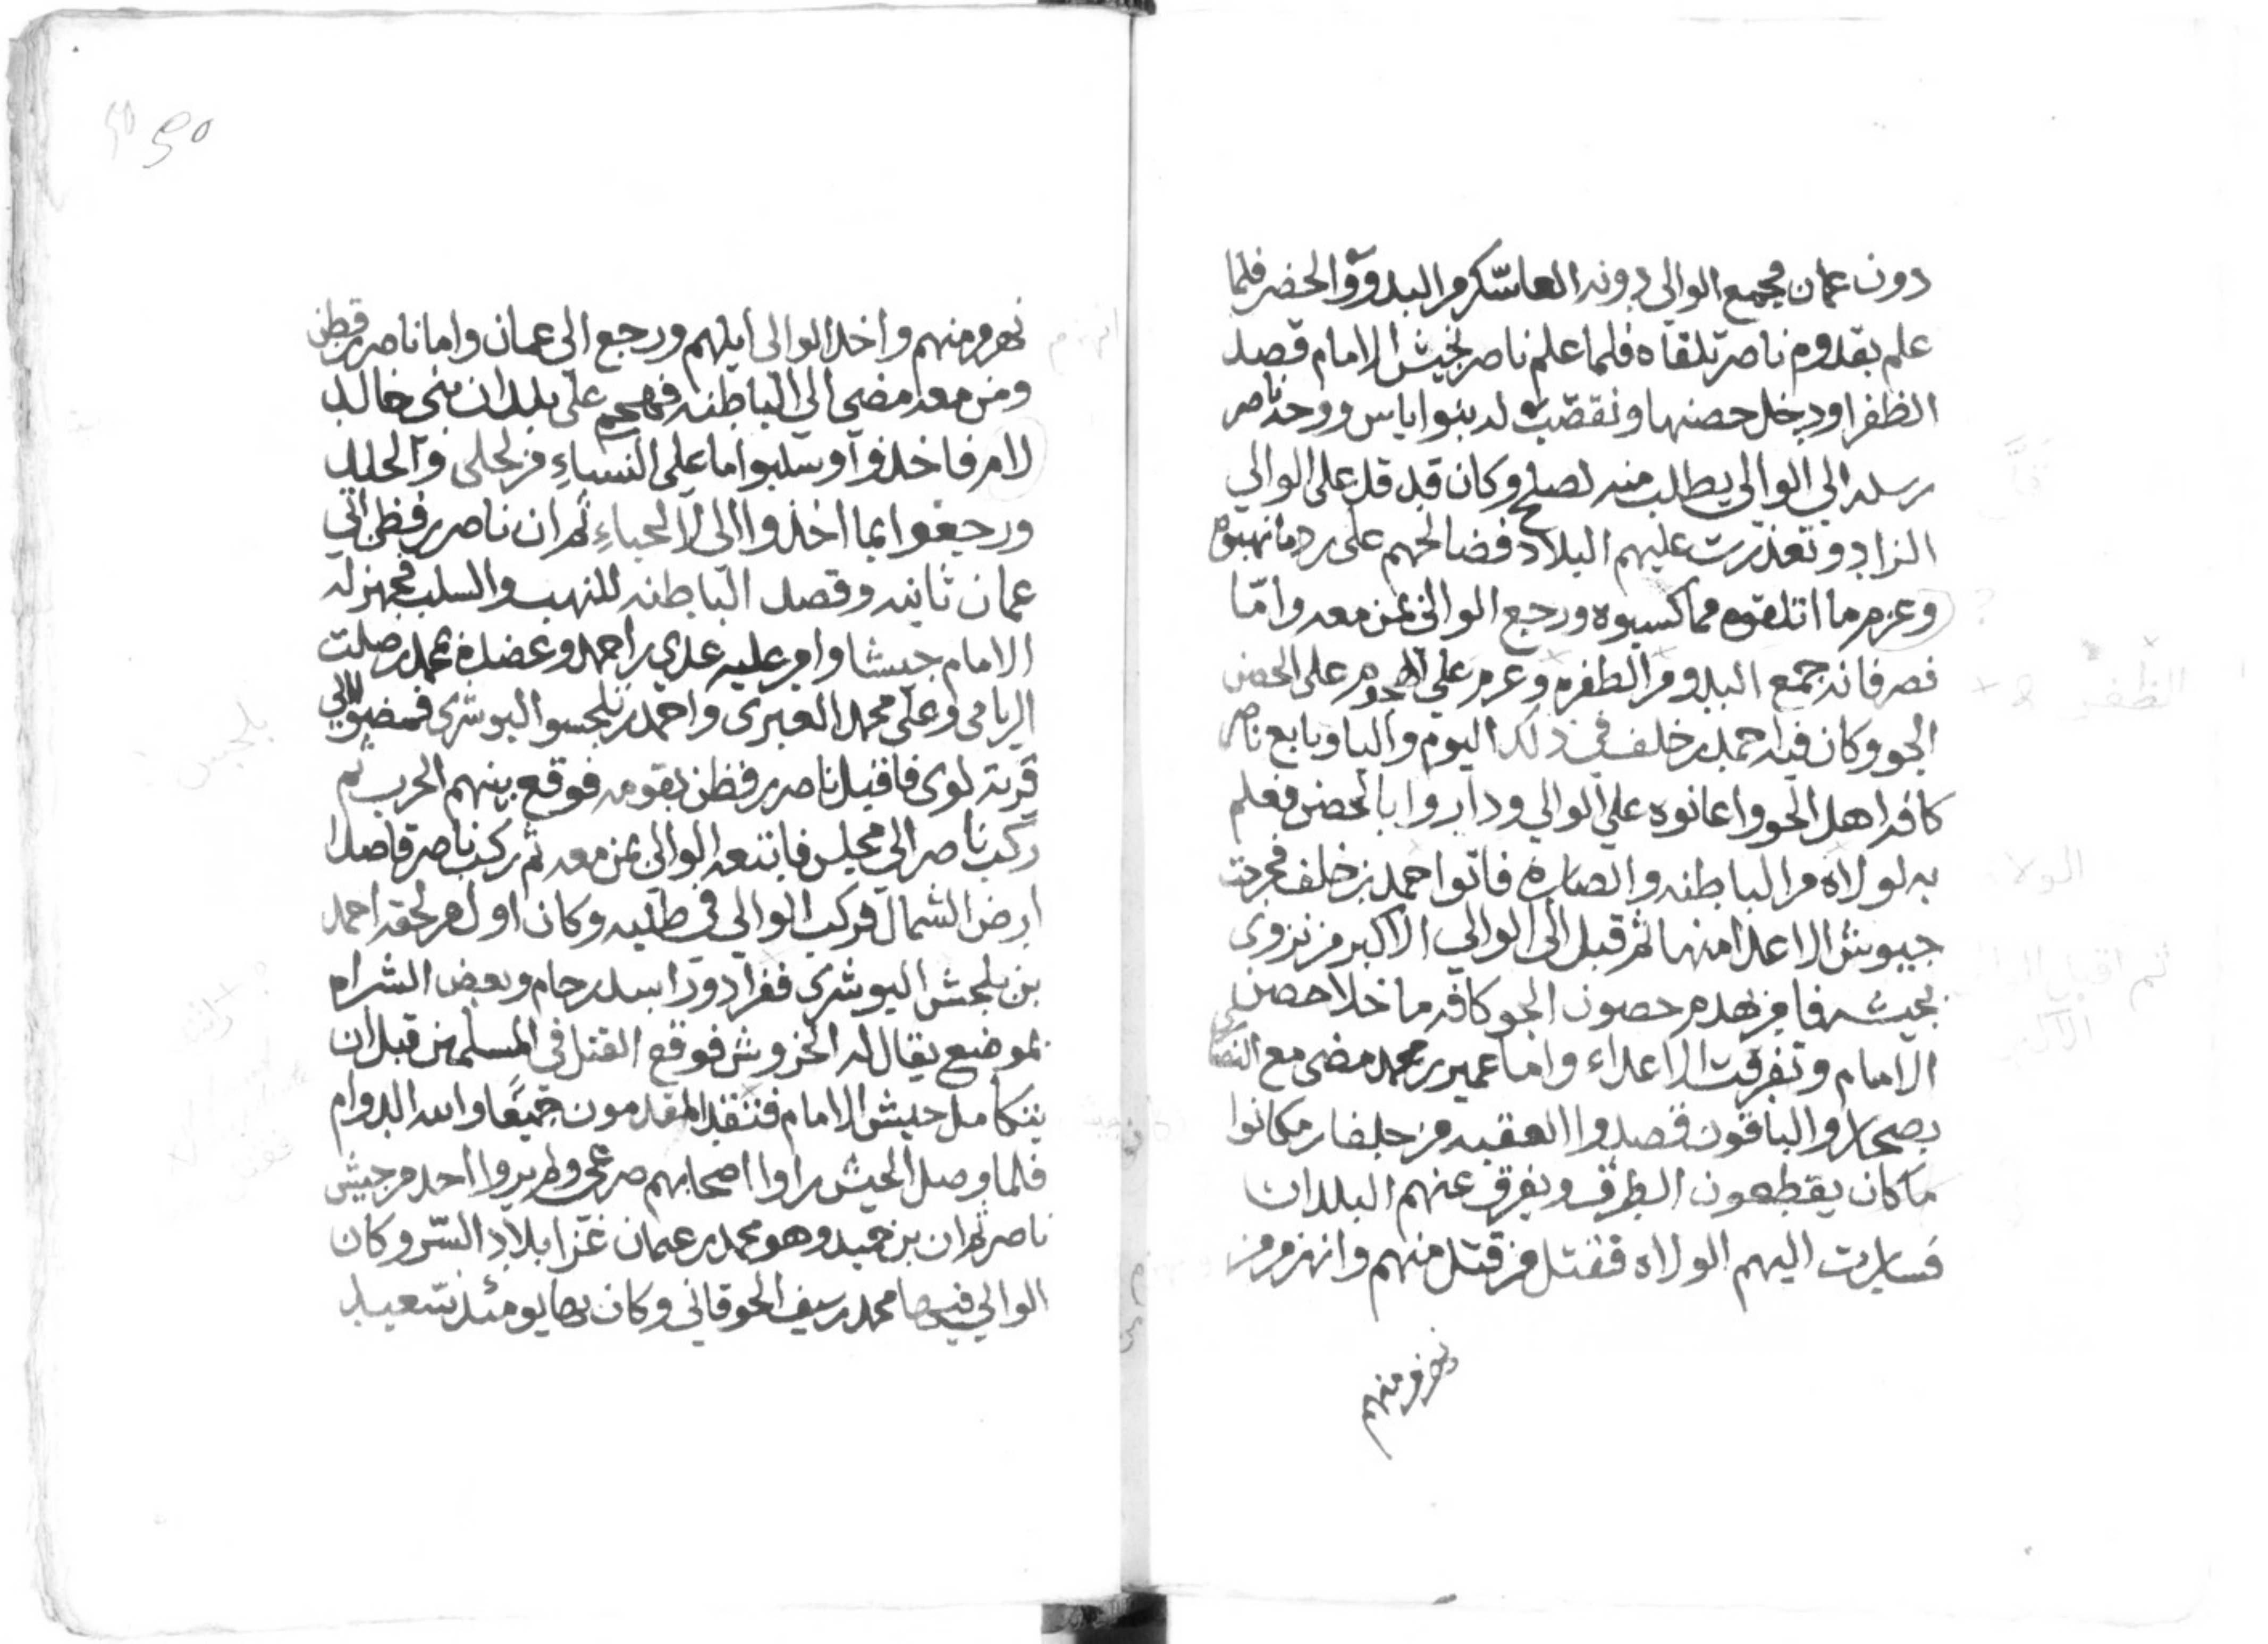 دون عمان فجمع الوالي دونه العاسكر من البدو والحضر فلما
علم بقدوم ناصر تلقاه فلما علم ناصر بجيش الامام قصد
الظفرا ودخل حصنها وتعصب له بنوا ياس ووجه ناصر
رسله الي الوالي يطلب منه لصلح وكان قد قل على الوالي
الزاد وتعذرت عليهم البلاد فصالحهم على رد ما نهبوه
وعزم ما اتلفوه مما كسبوه ورجع الوالي بمن معه وامّا
نصر فانه جمع البدو من الظفره وعزم على الهجوم على الحصن
الجو وكان فيه احمد بن خلف في ذلك اليوم واليا وبايع ناصر
كافه اهل الجو واعانوه علي الوالي وداروا بالحصن فعلم
به لولاه من الباطنه والصاره فاتوا احمد بن خلف فجردت
جيوش الاعدا منها ثم قبل الى الوالي الاكبر من نزوى
بجيشه فامر بهدم حصون الجو كافه ما خلا حصن
الامام وتفرقت الاعداء واما عمير بن محمد مضى مع النصارى
بصحار والباقون قصدوا العقبه من جلفار مكانوا
ما كان يقطعون الطرق ويغرق عنهم البلدان
فسارت اليهم الولاه فقتل من قتل منهم وانهزم من
نهزم منهم
نهزم منهم واخذ الوالى ابلهم ورجع الى عمان واما ناصر بن قطن
ومن معه مضى الي الباطنه فهجم على بلدان بني خالد
لام فاخذوا وسلبوا ما على النساء من لحلى والحلل
ورجعوا بما اخذوا الى لاحساء ثم ان ناصر بن قطن اتي
عمان ثانيه وقصد الباطنه للنهب والسلب فجهز له
الامام جيشا وامر عليه علي بن احمد وعضده محمد بن صلت
الريامي وعلي محمد العبري واحمد بن بلحسو البوشري فمضوا الي
قرية لوى فاقبل ناصر بن قطن بقومه فوقع بينهم الحرب ثم
ركب ناصر الي مجلس فاتبعه الوالي بمن معه ثم ركب ناصر قاصدا
ارض الشمال فركب الوالي في طلبه وكان اول من لحقه احمد
بن بلحش البوشري ومراد وراسد بن حام وبعض الشراه
بموضع يقال له الخروش فوقع القتل في المسلمين قبل ان
يتكامل جيش الامام فتنفذ المقدمون جميعًا والله الدوام
فلما وصل الجيش راوا اصحابهم صرعى ولم يروا احد من جيش
ناصر ثم ان بن حميد وهو محمد بن عمان غزا بلاد السّر وكان
الوالي فيها محمد بن سيف الحوقاني وكان بها يومئذ سعيد